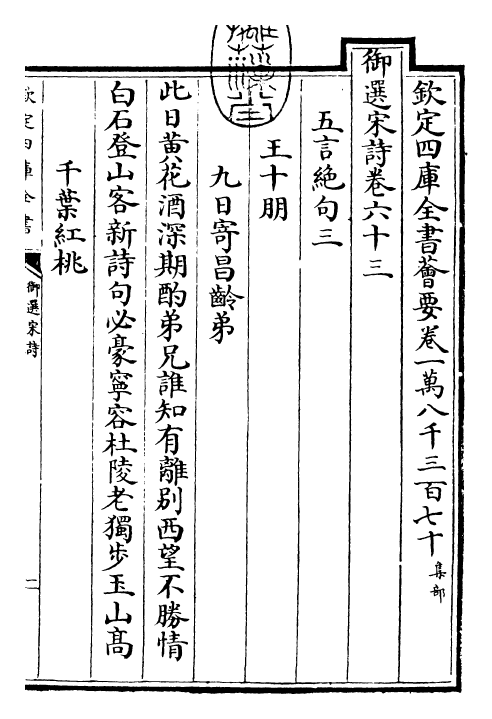 欽定四庫全書薈要卷一萬八千三百七十 集部
御選宋詩卷六十三
五言絶句三
王十朋
九日寄昌齡弟
此日黄花酒深期酌弟兄誰知有離別西望不勝情
白石登山客新詩句必豪寧容杜陵老獨步玉山髙
千葉紅桃
欽定四庫全書
御選宋詩